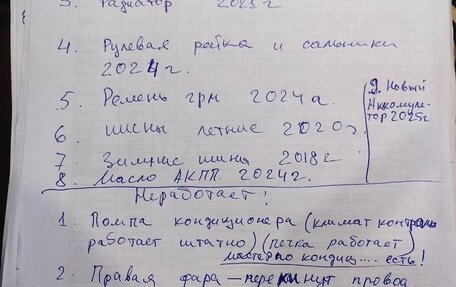 3. Радиатор 2023 г
4. Рулевая рейка и сальники
2024 г.
5. Ремень грм 2024 г.
6. шины летние 2020 г.
7. Зимние шины 2018 г
8. Масло АКПП. 2024 г.
9. Новый
Аккомуля-
тор 2025г
Неработает!
1. Помпа кондиционера (климат контроль
работает штатно) (печка работает)
масте по кондиц.... есть!
2. Правая фара — перекинут провод